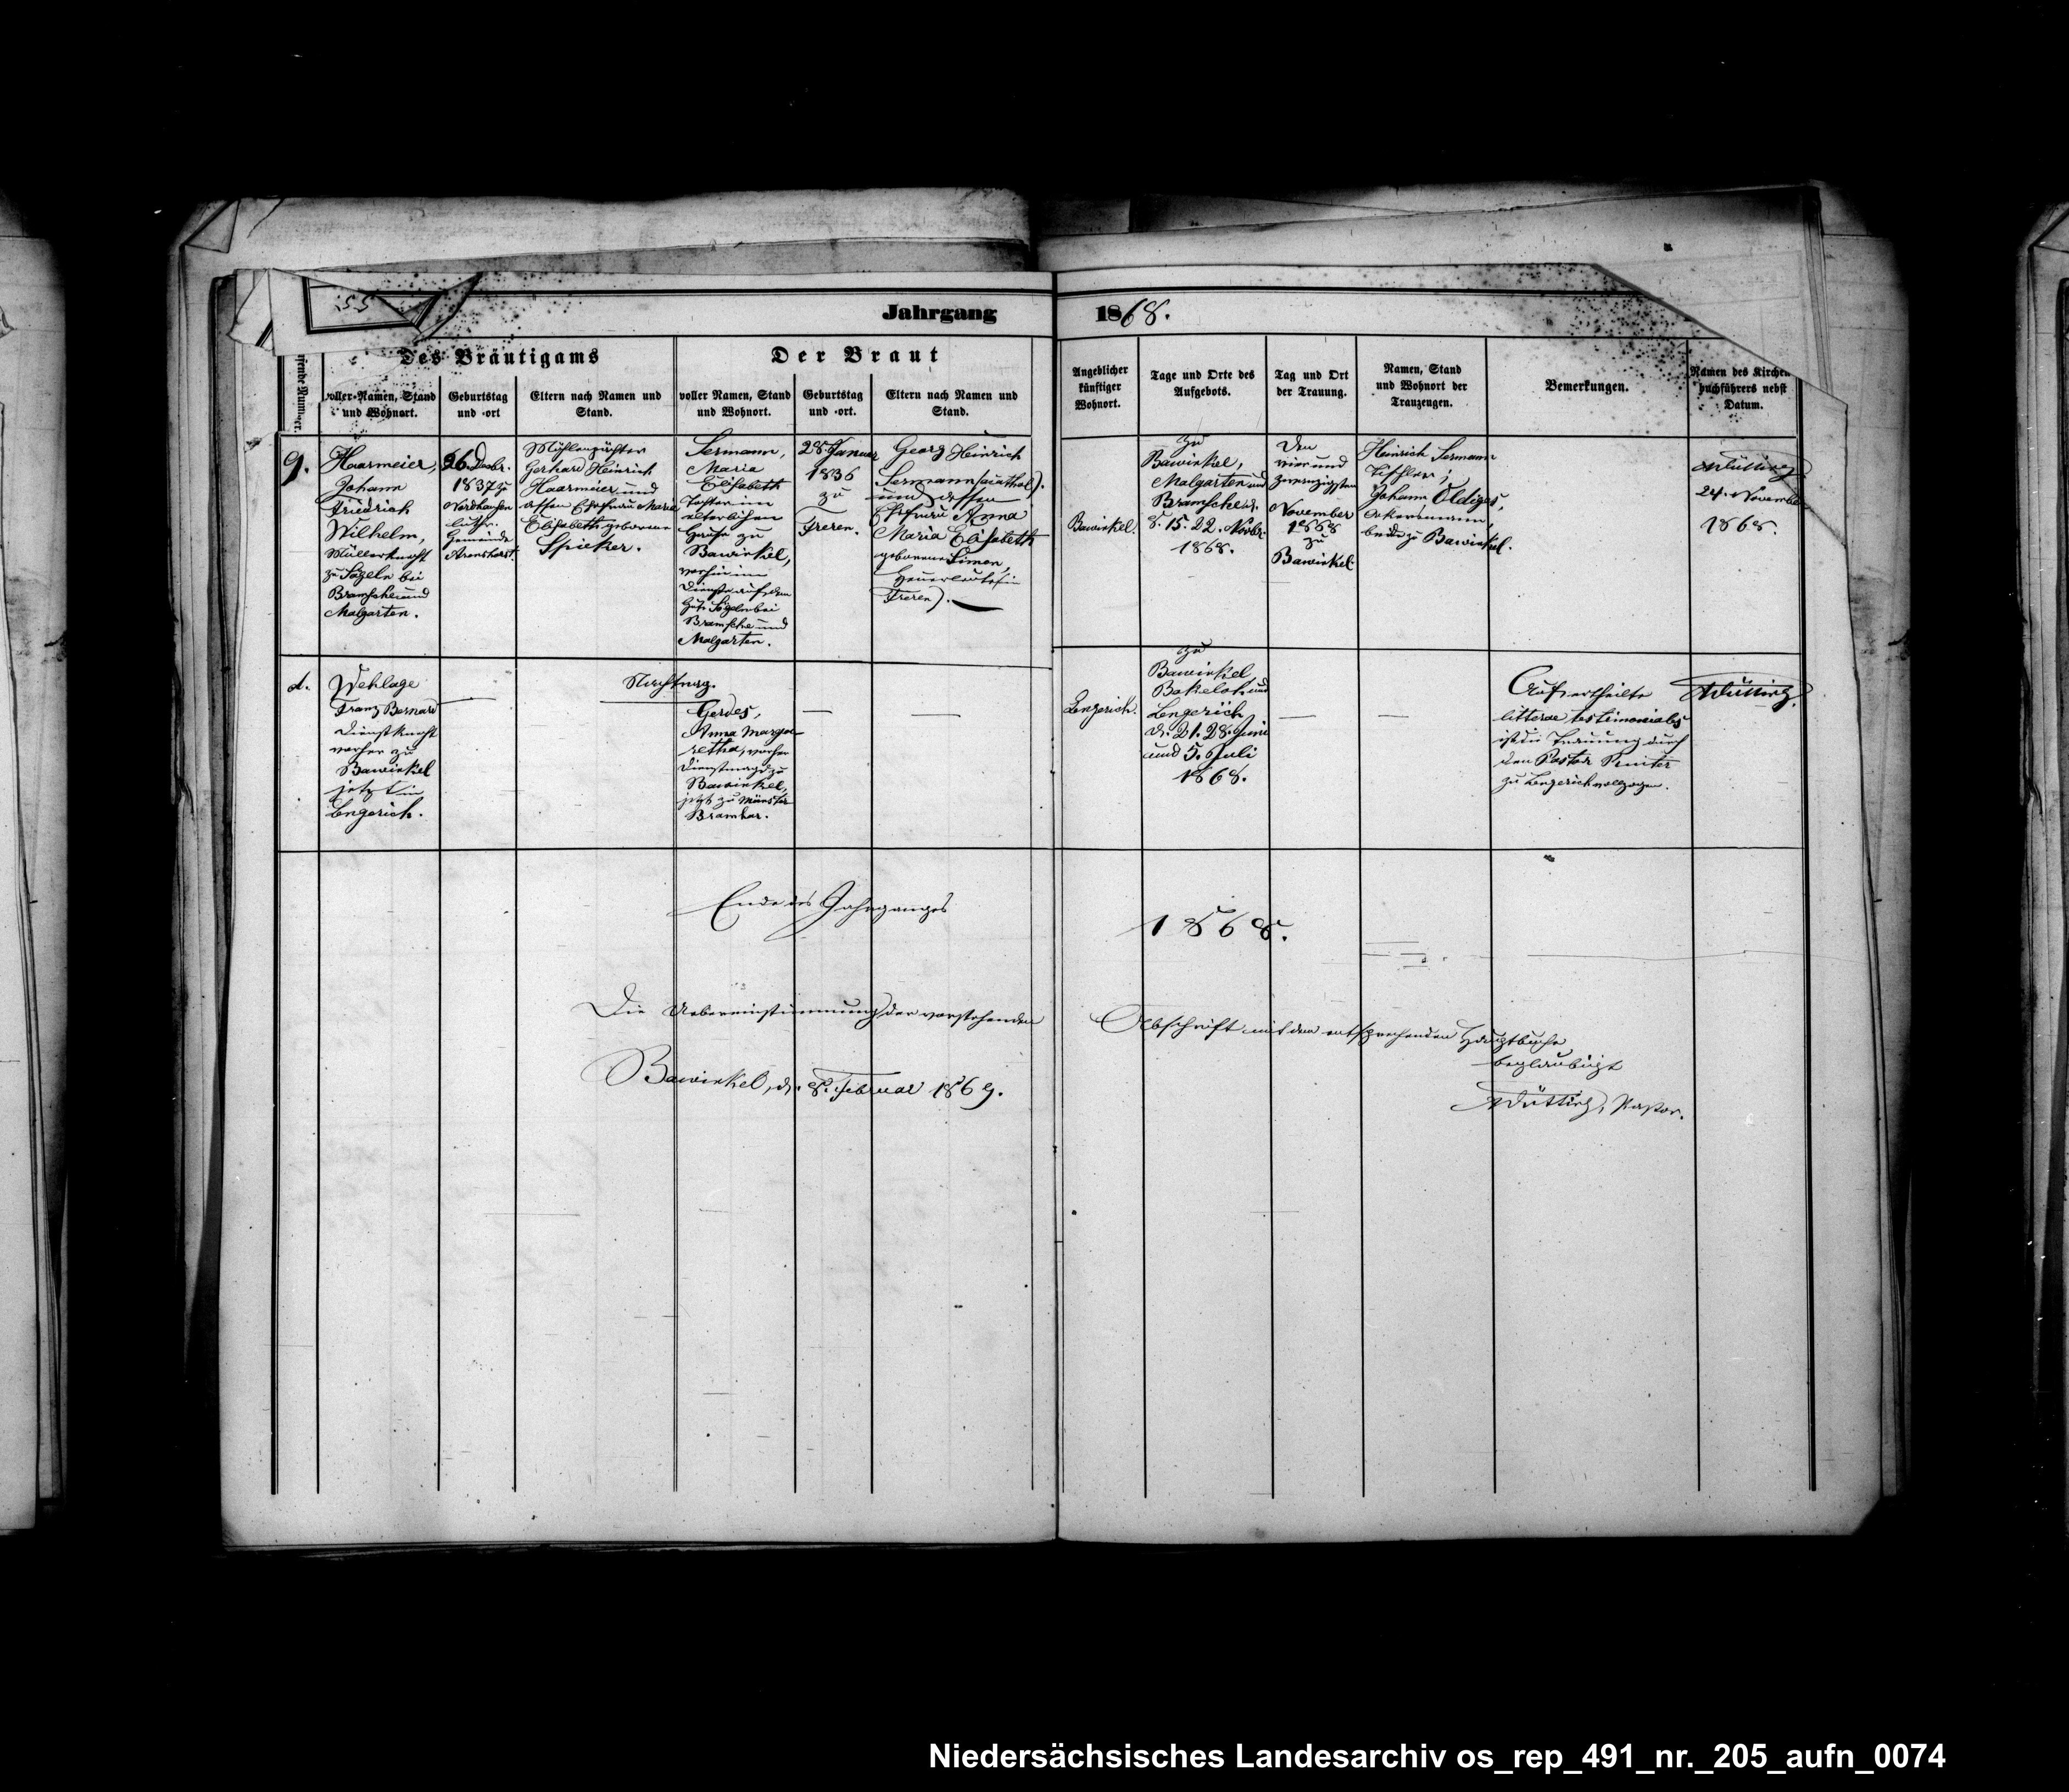 55
Jahrgang 1868.
Des Bräutigams
Der Braut
voller Namen, Stand
und Wohnort.
Geburtstag
und -ort
Eltern nach Namen und
Stand.
voller Namen, Stand
und Wohnort.
Geburtstag
und -ort.
Eltern nach Namen und
Stand.
Angeblicher
künftiger
Wohnort.
Tage und Orte des
Aufgebots.
Tag und Ort
der Trauung.
Namen, Stand
und Wohnort der
Trauzeugen.
Bemerkungen.
Namen des Kirchen-
buchführers nebst
Datum.
9.
Haarmeier,
Johann
Friedrich
Wilhelm,
Müllerknecht
zu Sögeln bei
Bramsche und
Malgarten.
26. Decbr.
1837 zu
Nordhausen
luth.
Gemeinde
Arenshorst.
Mühlenpächter
Gerhard Heinrich
Haarmeier und
dessen Ehefrau Maria
Elisabeth geborene
Spieker.
Sermann,
Maria
Elisabeth
Tochter im
elterlichen
Hause zu
Bawinkel,
vorhin im
Dienste auf dem
Gute Sögeln bei
Bramsche und
Malgarten.
28. Januar
1836
zu
Freren.
Georg Heinrich
Sermann
und dessen
Ehefrau Anna
Maria Elisabeth
geborene Simon,
Heuerleute in
Freren).
Bawinkel.
zu
Bawinkel,
Malgarten und
Bramsche d.
8. 15. 22. Novbr.
1868.
Den
vier und
zwanzigsten
November
1868
zu
Bawinkel.
Heinrich Sermann
Tischler;
Johann Oldiges,
Ackersmann,
beide zu Bawinkel.
24. November
1868.
d.
Wehlage
Franz Bernard
Dienstknecht
vorher zu
Bawinkel
jetzt in
Lengerich.
Nachtrag.
Gerdes,
Anna Marga-
retha, vorher
Dienstmagd zu
Bawinkel,
jetzt zu Münster
Bramhar.
Lengerich.
zu
Bawinkel,
Bokeloh und
Lengerich
d. 21. 28. Juni
und 5. Juli
1868.
Auf ertheilte
litterae testimoniales
ist die Trauung durch
den Pastor
zu Lengerich vollzogen.
Ende des Jahrganges 1868.
Die Uebereinstimmung der vorstehenden Abschrift mit dem entsprechenden Hauptbuche
beglaubigt
Bawinkel, d. 8. Februar 1869.
Pastor.
Niedersächsisches Landesarchiv os_rep_491_nr._205_aufn_0074